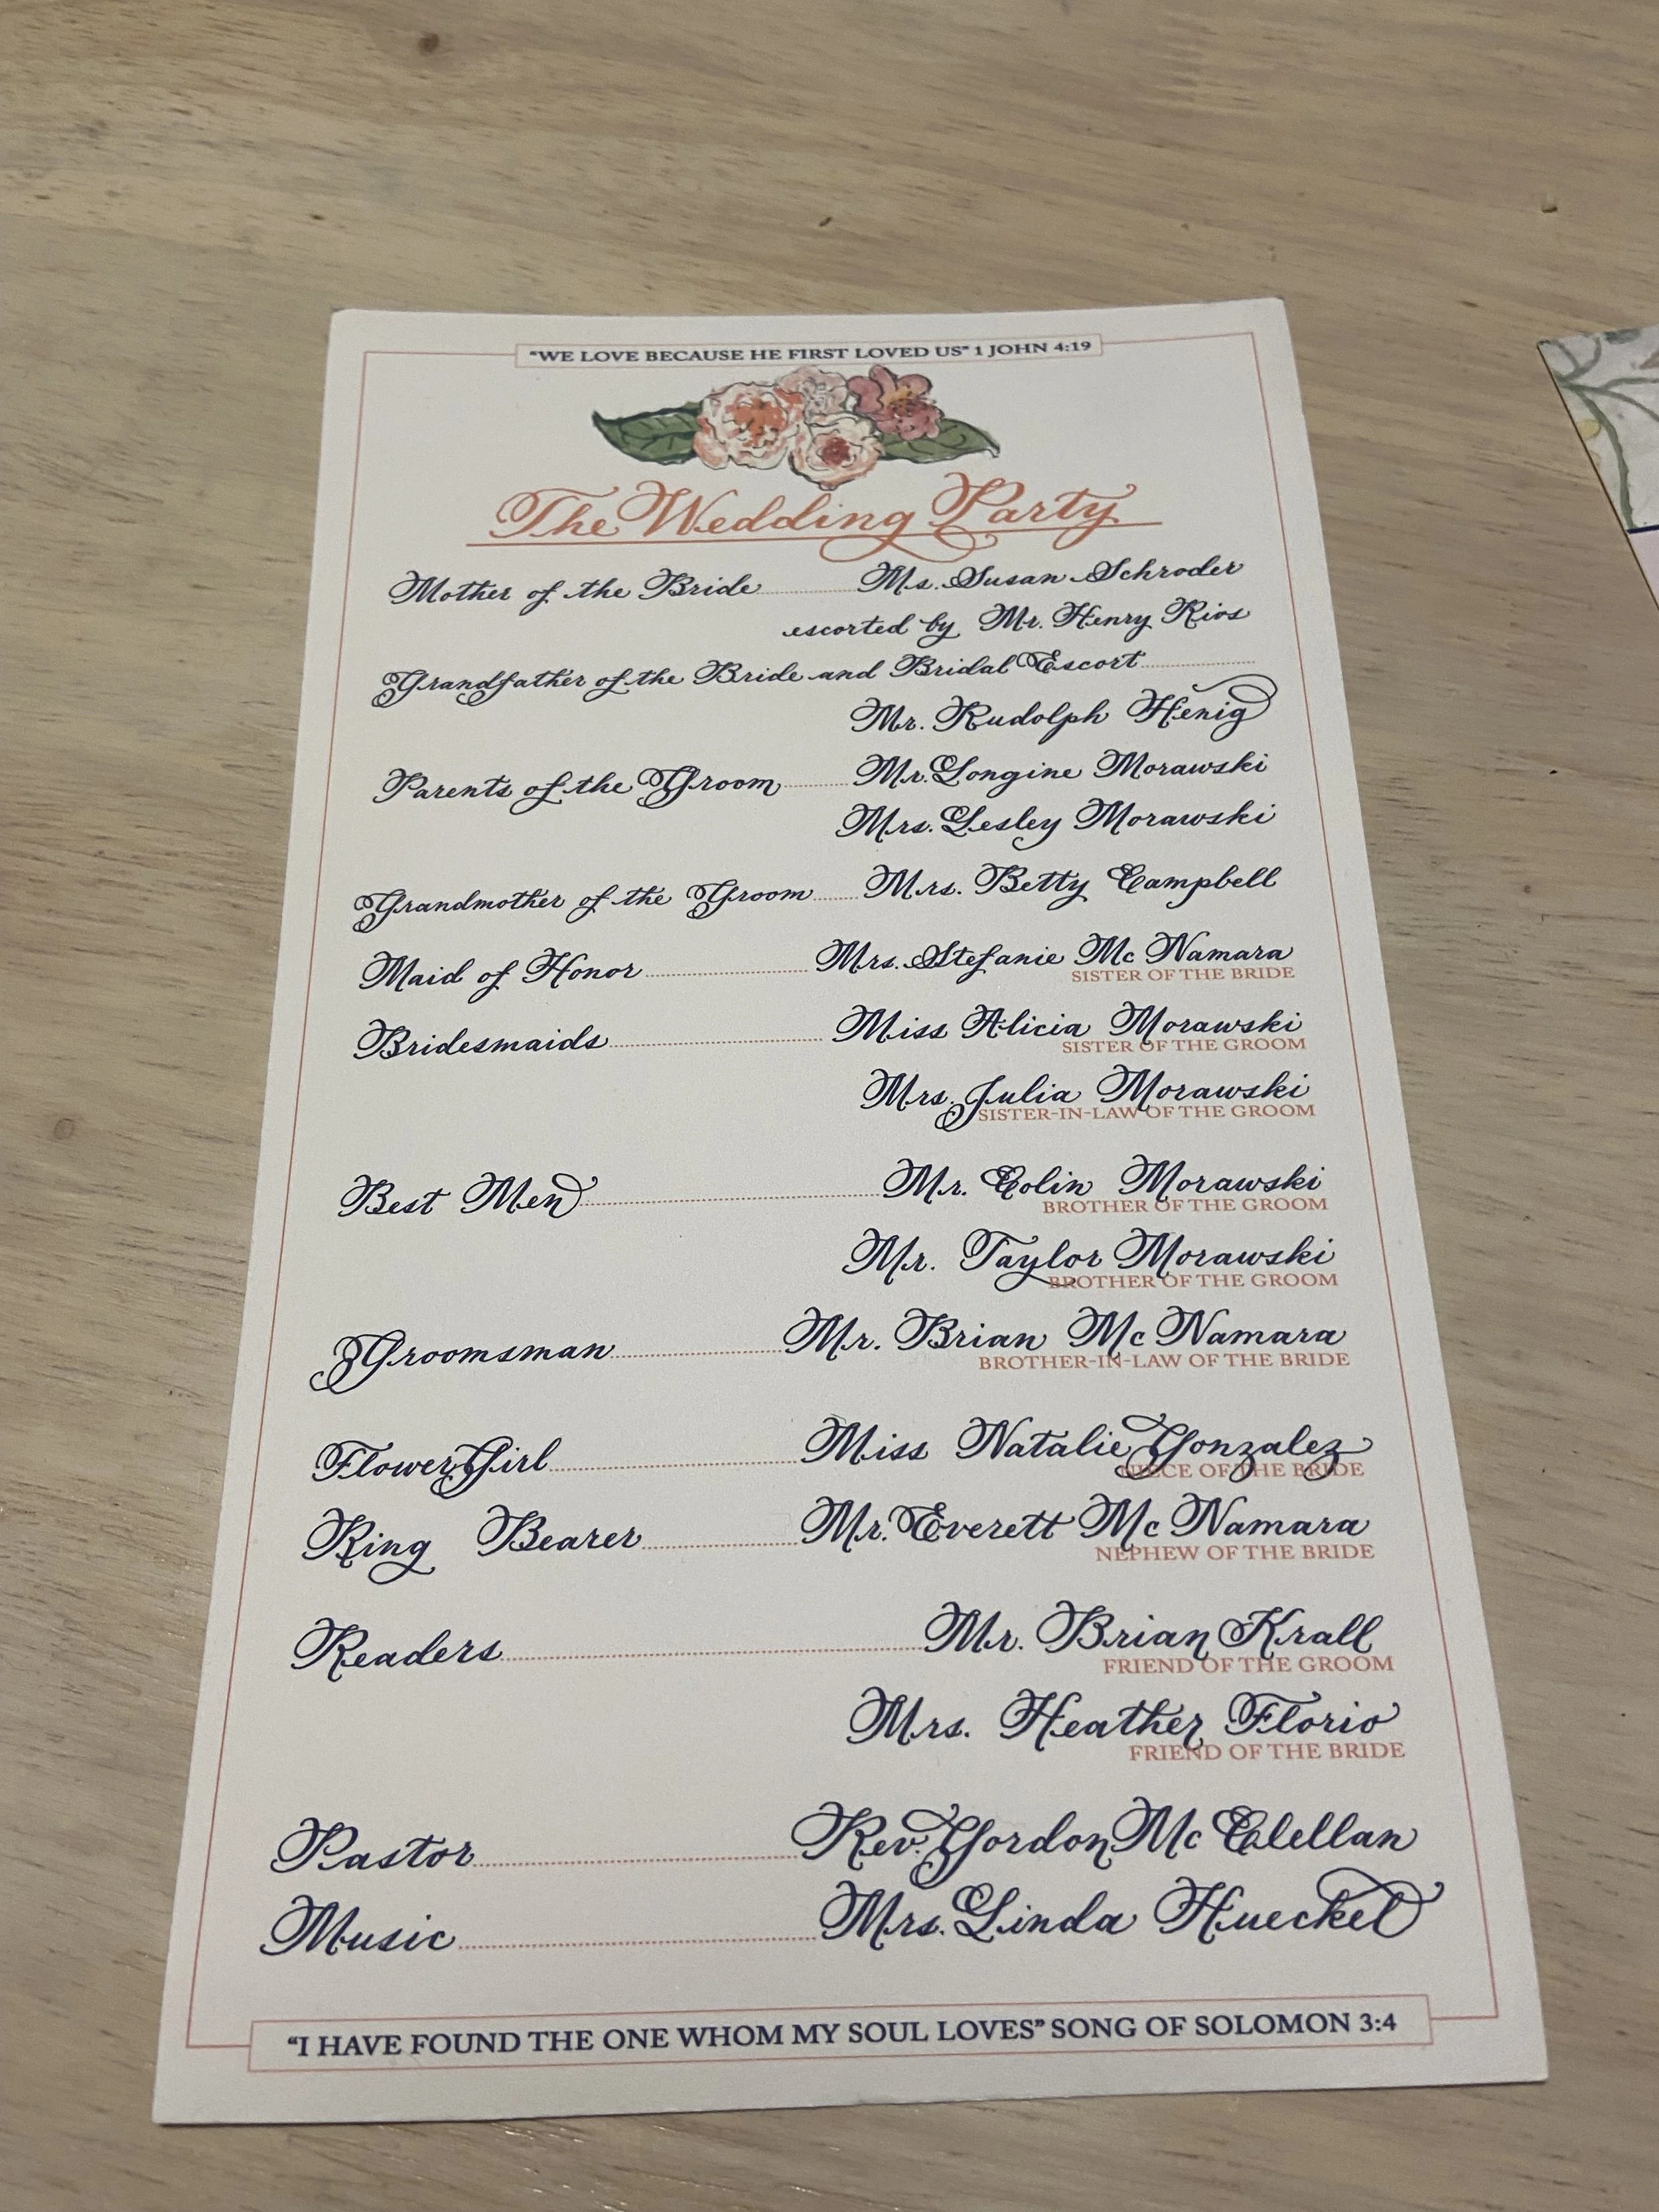 "WE LOVE BECAUSE HE FIRST LOVED US" 1 JOHN 4:19
The Wedding Party
Mother of the Bride Ms. Susan Schroder
escorted by Mr. Henry Rios
Grandfather of the Bride and Bridal Escort
Mr. Rudolph Henig
Parents of the Groom Mr. Longine Morawski
Mrs. Lesley Morawski
Grandmother of the Groom Mrs. Betty Campbell
Maid of Honor Mrs. Stefanie Mc Namara
SISTER OF THE BRIDE
Bridesmaids Miss Alicia Morawski
SISTER OF THE GROOM
Mrs. Julia Morawski
SISTER-IN-LAW OF THE GROOM
Best Men Mr. Colin Morawski
BROTHER OF THE GROOM
Mr. Taylor Morawski
BROTHER OF THE GROOM
Groomsman Mr. Brian Mc Namara
BROTHER-IN-LAW OF THE BRIDE
Flower Girl Miss Natalie Gonzalez
NIECE OF THE BRIDE
Ring Bearer Mr. Everett Mc Namara
NEPHEW OF THE BRIDE
Readers Mr. Brian Krall
FRIEND OF THE GROOM
Mrs. Heather Florio
FRIEND OF THE BRIDE
Pastor Rev. Gordon Mc Clellan
Music Mrs. Linda Hueckel
"I HAVE FOUND THE ONE WHOM MY SOUL LOVES" SONG OF SOLOMON 3:4